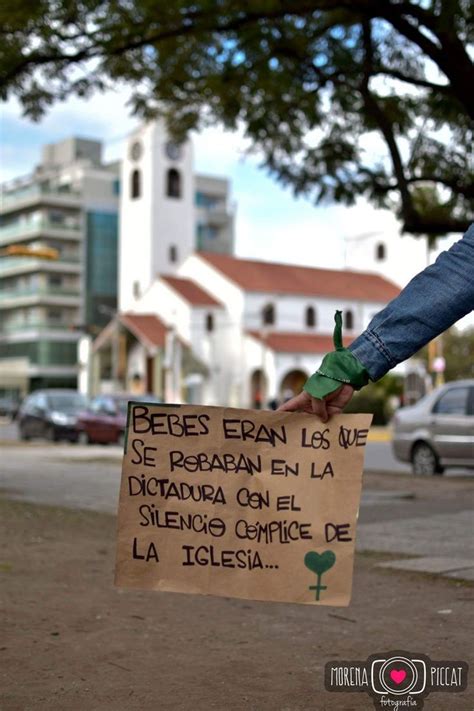 BEBES ERAN LOS QUE
SE ROBABAN EN LA
DICTADURA CON EL
SILENCIO COMPLICE DE
LA IGLESIA...
MORENA PICCAT
fotografía